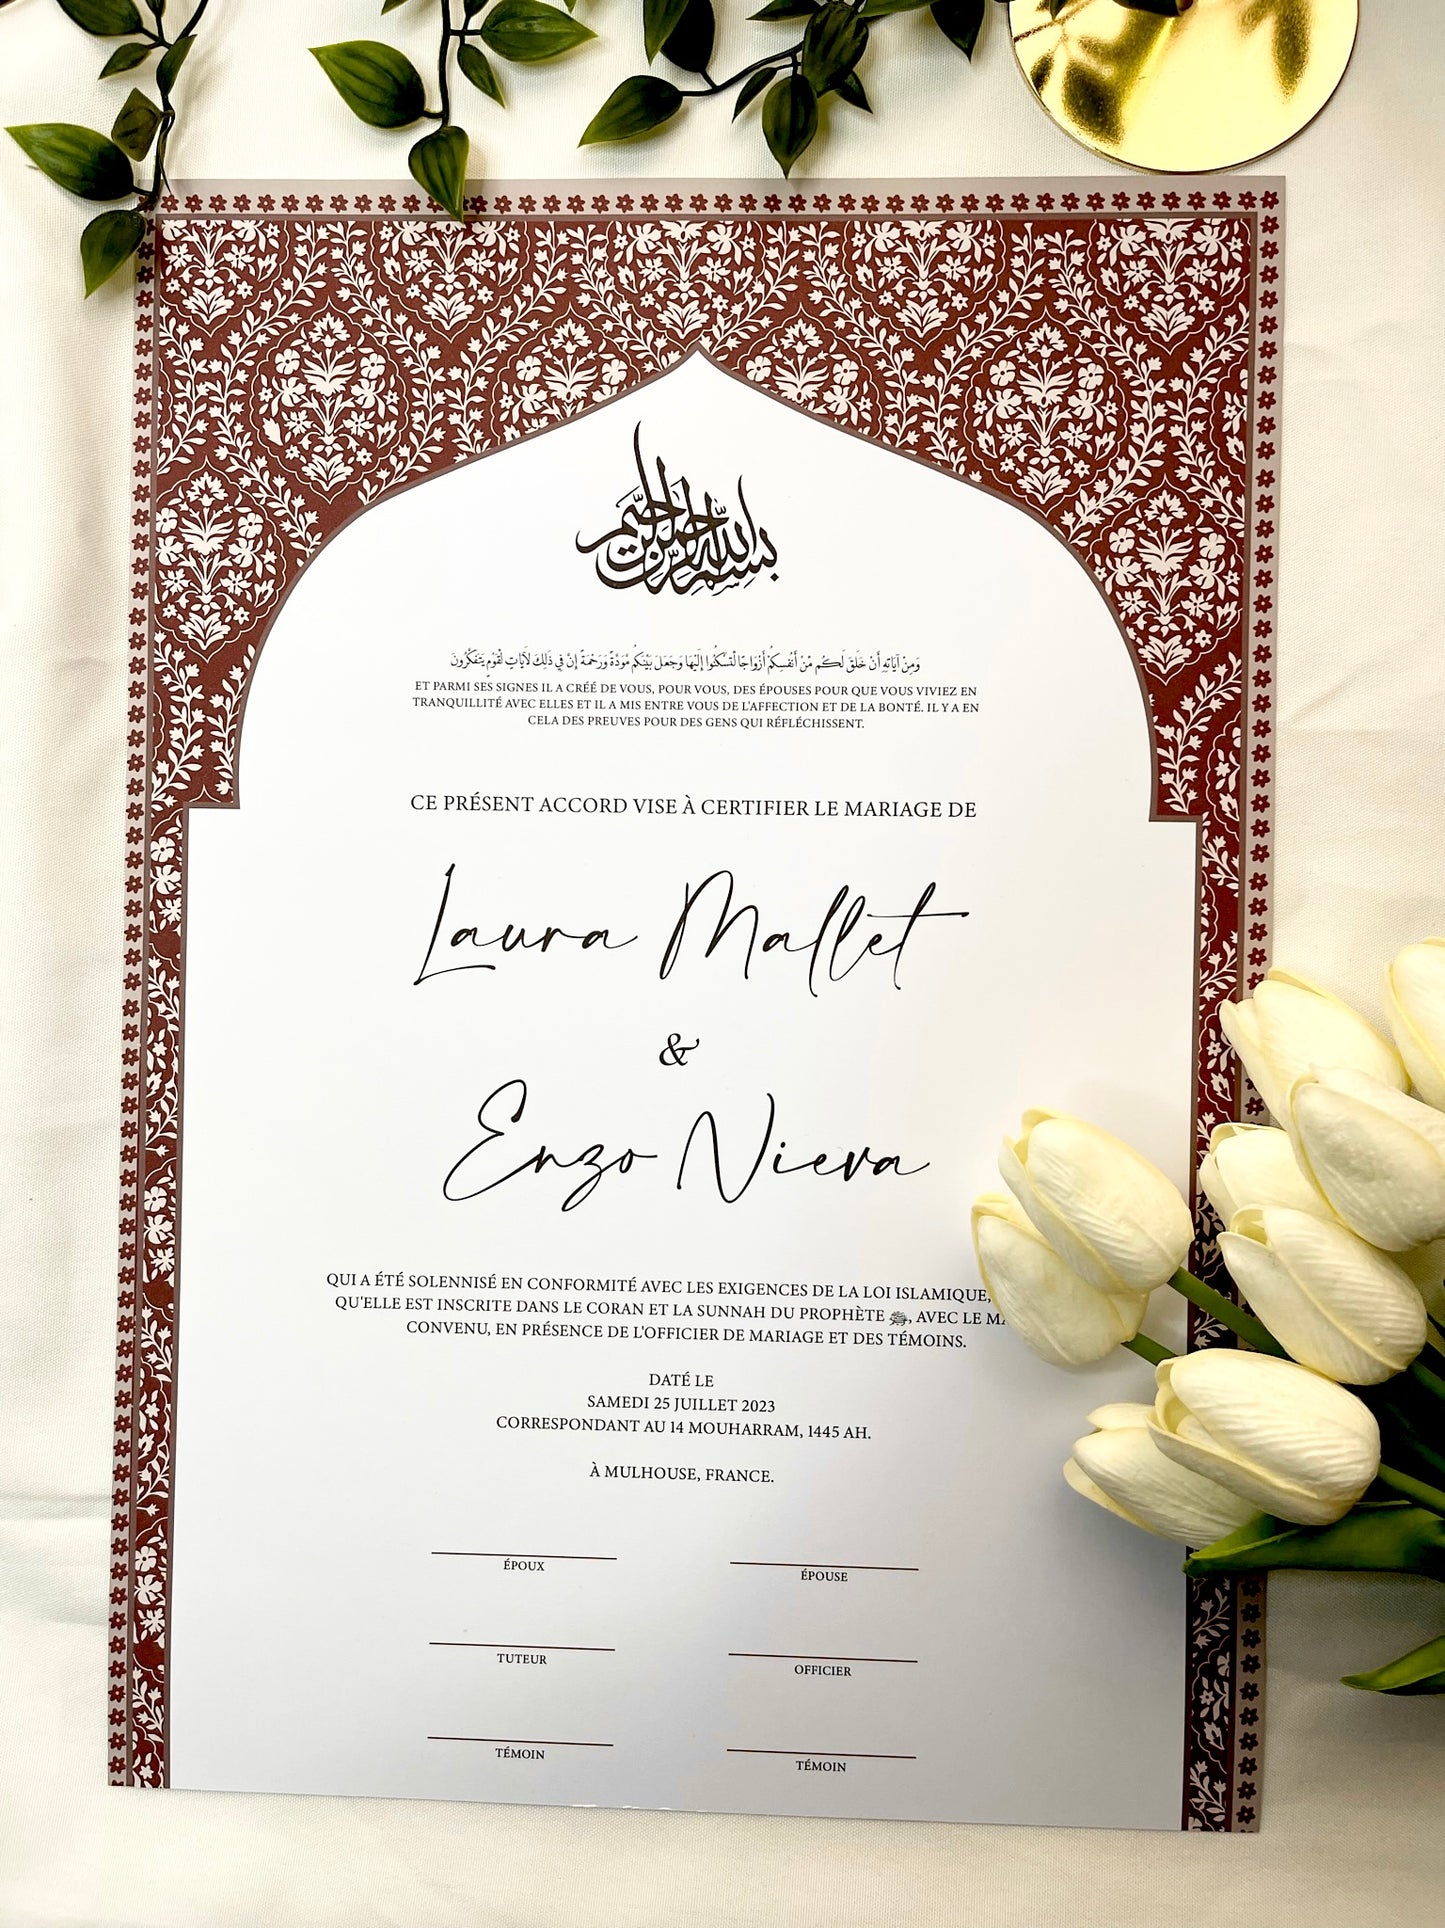 بسم الله الرحمن الرحيم
وَمِنْ آيَاتِهِ أَنْ خَلَقَ لَكُم مِّنْ أَنفُسِكُمْ أَزْوَاجًا لِّتَسْكُنُوا إِلَيْهَا وَجَعَلَ بَيْنَكُم مَّوَدَّةً وَرَحْمَةً إِنَّ فِي ذَٰلِكَ لَآيَاتٍ لِّقَوْمٍ يَتَفَكَّرُونَ
ET PARMI SES SIGNES IL A CRÉÉ DE VOUS, POUR VOUS, DES ÉPOUSES POUR QUE VOUS VIVIEZ EN
TRANQUILLITÉ AVEC ELLES ET IL A MIS ENTRE VOUS DE L'AFFECTION ET DE LA BONTÉ. IL Y A EN
CELA DES PREUVES POUR DES GENS QUI RÉFLÉCHISSENT.
CE PRÉSENT ACCORD VISE À CERTIFIER LE MARIAGE DE
Laura Mallet
&
Enzo Nieva
QUI A ÉTÉ SOLENNISÉ EN CONFORMITÉ AVEC LES EXIGENCES DE LA LOI ISLAMIQUE,
QU'ELLE EST INSCRITE DANS LE CORAN ET LA SUNNAH DU PROPHÈTE ﷺ, AVEC LE
CONVENU, EN PRÉSENCE DE L'OFFICIER DE MARIAGE ET DES TÉMOINS.
DATÉ LE
SAMEDI 25 JUILLET 2023
CORRESPONDANT AU 14 MOUHARRAM, 1445 AH.
À MULHOUSE, FRANCE.
ÉPOUX ÉPOUSE
TUTEUR OFFICIER
TÉMOIN TÉMOIN